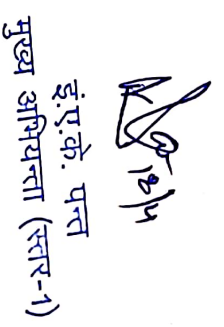 18/4
इं.ए.के. पन्त
मुख्य अभियन्ता (स्तर-1)